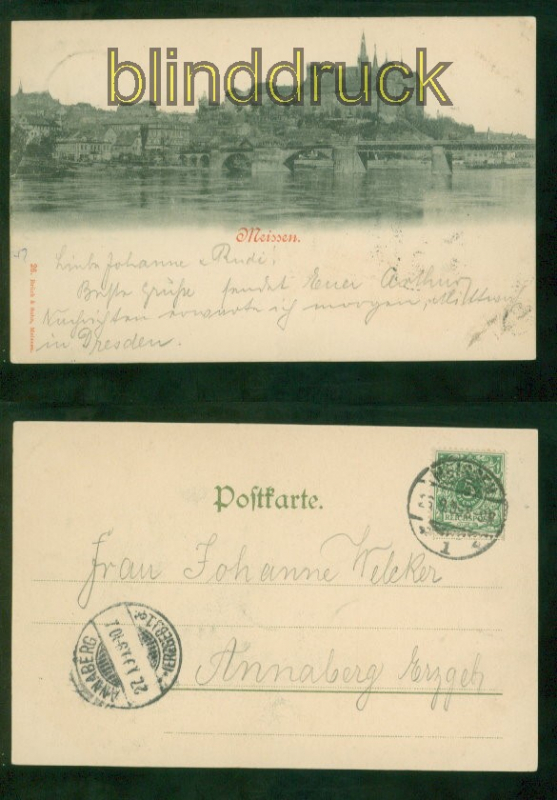 blinddruck
Meissen.
Liebe Johanne u Rudi!
Beste Grüße sendet Euer Arthur
Nachrichten erwarte ich morgen, Mittwoch
in Dresden.
Postkarte.
MEISSEN
5
REICHSPOST
1
Frau Johanne Welcker
ANNABERG
ERZGEBIRGE
Annaberg Erzgeb